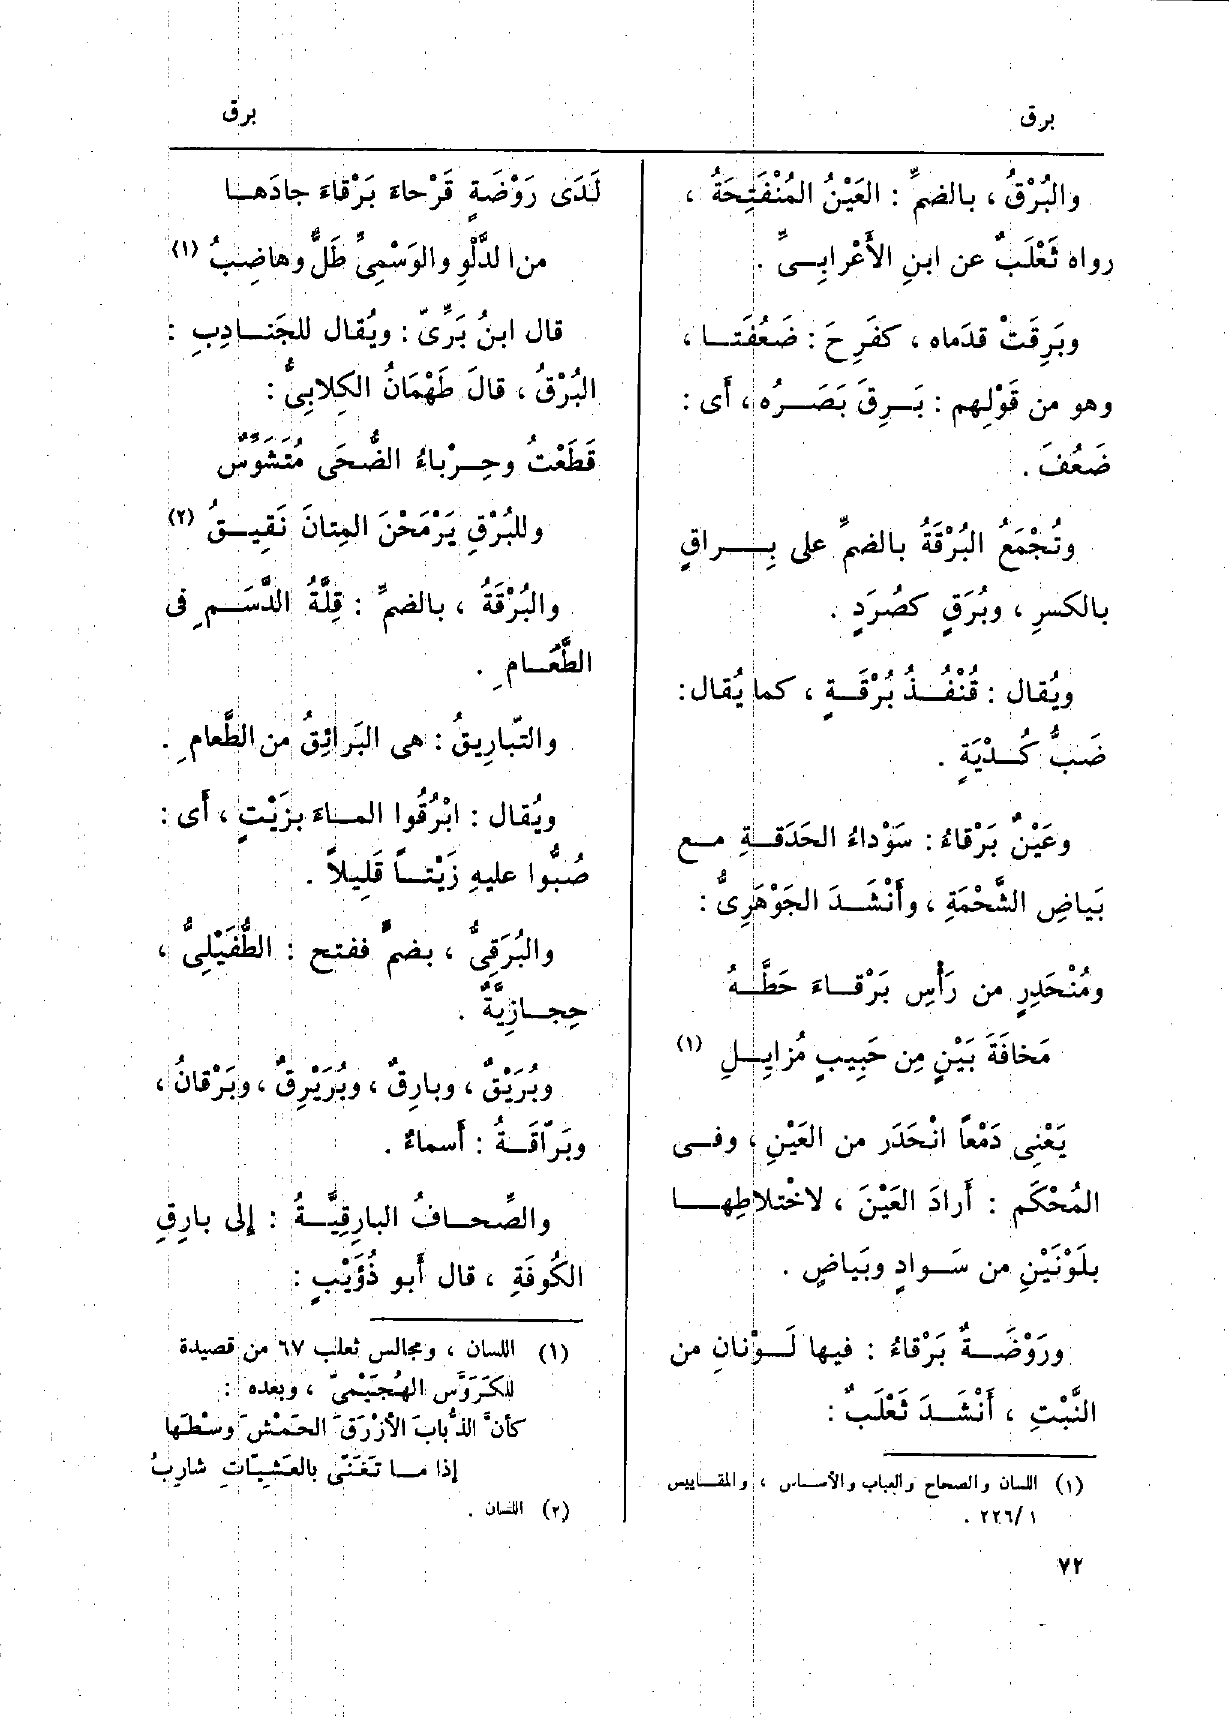 برق
برق
والبُرْقُ ، بالضمِّ : العَيْنُ المُنْفَتِحَةُ ،
رواه ثَعْلَبٌ عن ابنِ الأَعْرابِــىِّ .
وبَرِقَتْ قدَماه ، كفَرِحَ : ضَعُفَتــا ،
وهو من قَوْلِهم : بَــرِقَ بَصَــرُه ، أَى :
ضَعُفَ .
وتُجْمَعُ البُرْقَةُ بالضمِّ على بِــــراقٍ
بالكسرِ ، وبُرَقٍ كصُرَدٍ .
ويُقال : قُنْفُــذُ بُرْقَــةٍ ، كما يُقال :
ضَبُّ كُــدْيَةٍ .
وعَيْنٌ بَرْقاءُ : سَوْداءُ الحَدَقــةِ مــع
بَياضِ الشَّحْمَةِ ، وأَنْشَــدَ الجَوْهَرِىُّ :
ومُنْحَدِرٍ من رَأْسِ بَرْقــاءَ حَطَّــهُ
مَخافَةَ بَيْنٍ مِن حَبِيبٍ مُزايِــلِ (١)
يَعْنِى دَمْعاً انْحَدَر من العَيْنِ ، وفــى
المُحْكَم : أَرادَ العَيْنَ ، لاخْتلاطِهــا
بلَوْنَيْنِ من سَــوادٍ وبَياضٍ .
ورَوْضَــةٌ بَرْقاءُ : فيها لَــوْنانِ من
النَّبْتِ ، أَنْشَــدَ ثَعْلَبٌ :
(١) اللسان والصحاح والعباب والأســاس ، والمقــاييس
١/ ٢٢٦ .
٧٢
لَدَى رَوْضَةٍ قَرْحاءَ بَرْقاءَ جادَهــا
من الدَّلْوِ والوَسْمِىِّ طَلٌّ وهاضِبُ (١)
قال ابنُ بَرِّىّ : ويُقال للجَنــادِبِ :
البُرْقُ ، قالَ طَهْمَانُ الكِلابِىُّ :
قَطَعْتُ وحِــرْباءُ الضُّحَى مُتَشَوِّسٌ
وللبُرْقِ يَرْمَحْنَ المِتانَ نَقِيــقُ (٢)
والبُرْقَةُ ، بالضمِّ : قِلَّةُ الدَّسَــمِ فى
الطَّعَــامِ .
والتّبارِيقُ : هى البَرائِقُ من الطَّعام ِ .
ويُقال : ابْرُقُوا المــاءَ بزَيْتٍ ، أَى :
صُبُّوا عليهِ زَيْتــاً قَلِيلاً .
والبُرَقِىُّ ، بضمٍّ ففتح : الطُّفَيْلِىُّ ،
حِجــازِيَّةٌ .
وبُرَيْقٌ ، وبارِقٌ ، وبُرَيْرِقٌ ، وبَرْقانُ ،
وبَرّاقَــةُ : أَسماءٌ .
والصِّحــافُ البارِقِيَّــةُ : إلى بارِقِ
الكُوفَةِ ، قال أَبو ذُؤَيْبٍ :
(١) اللسان ، ومجالس ثعلب ٦٧ من قصيدة
للكَرَوَّس الهُجَيْمىّ ، وبعده :
كأَنّ الذُّبابَ الأَزْرَقَ الحَمْشَ وسْطَها
إذا مــا تَغَنّى بالعَشِيّاتِ شارِبُ
(٢) اللسان .